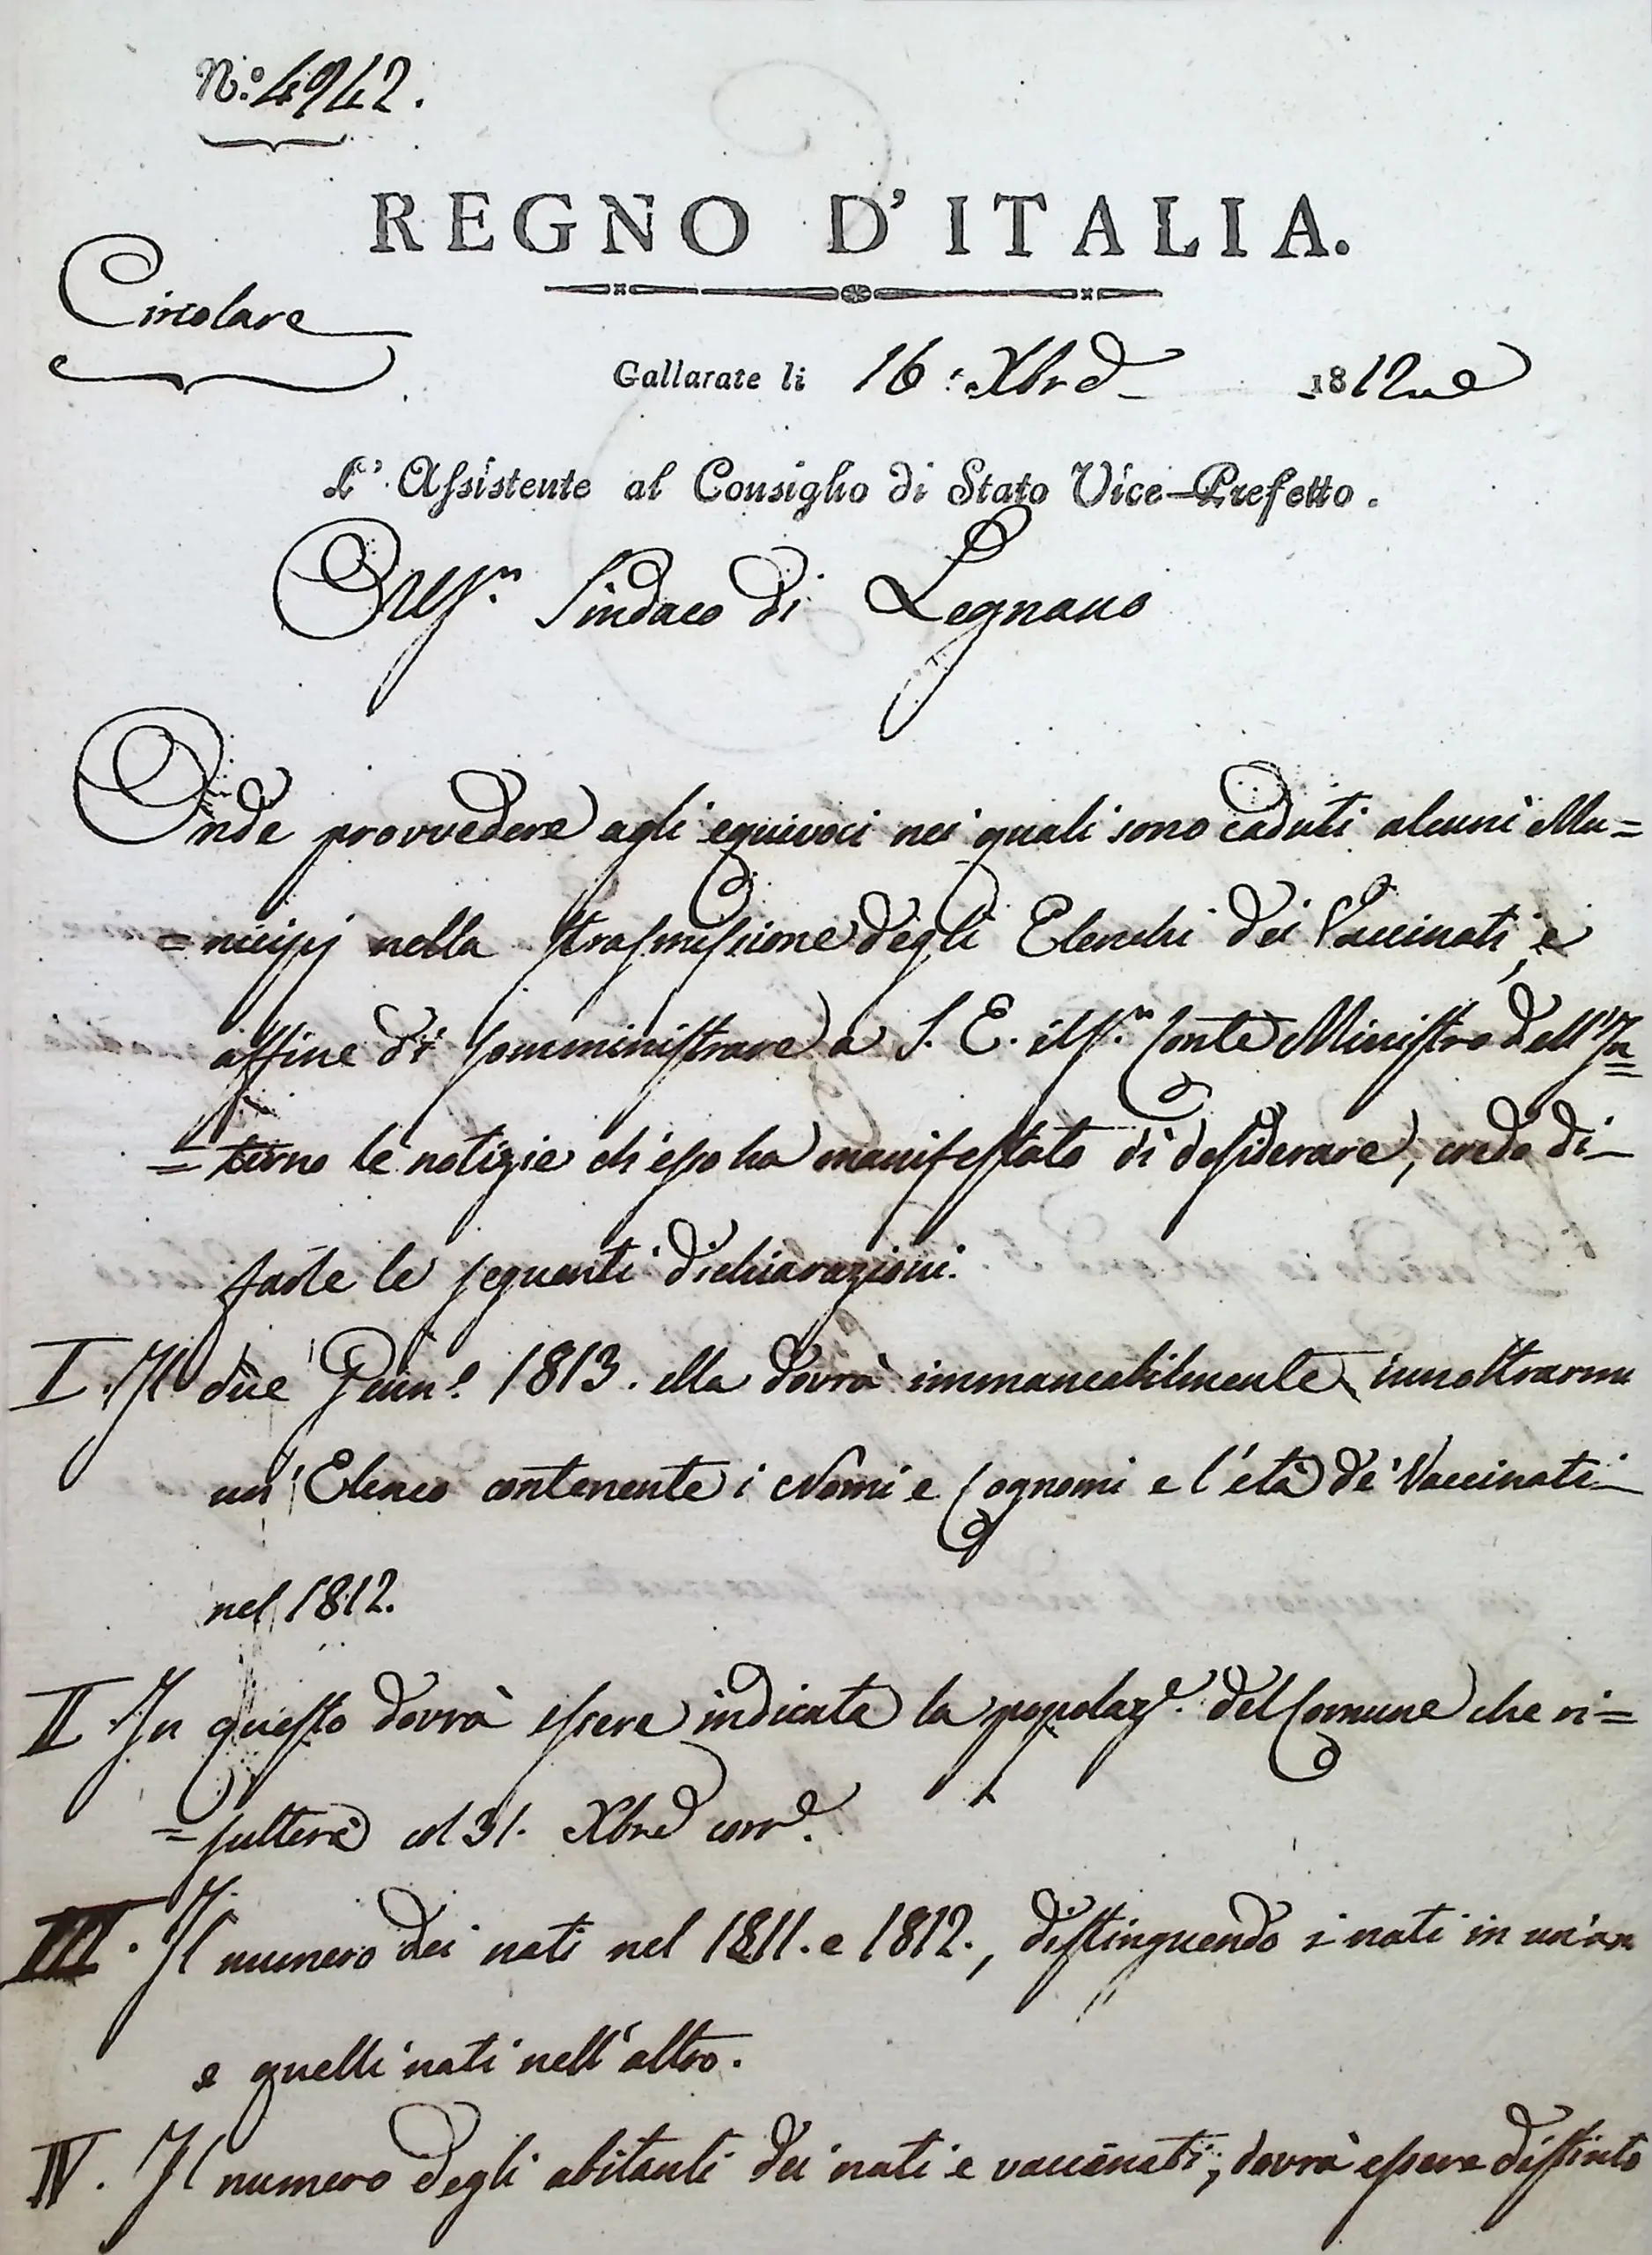 N.º 4942.
REGNO D'ITALIA.
Circolare
Gallarate li 16: Xbre 1812
L'Assistente al Consiglio di Stato Vice-Prefetto.
Sindaco di Legnano
Onde provvedere agli equivoci nei quali sono caduti alcuni Mu=
=nicipj nella trasmissione degli Elenchi dei Vaccinati, e
affine di somministrare a S. E. il Sr. Conte Ministro dell'In
=terno le notizie ch'esso ha manifestato di desiderare, credo di
farle le seguenti dichiarazioni.
I. Il due Genno. 1813. ella dovrà immancabilmente innoltrarmi
un'Elenco contenente i Nomi e Cognomi e l'età de' Vaccinati
nel 1812.
II. In questo dovrà essere indicata la popolaze. del Comune che ri=
=sulterà al 31. Xbre corre.
III. Il numero dei nati nel 1811. e 1812., distinguendo i nati in un'an
e quelli nati nell'altro.
IV. Il numero degli abitanti dei nati e vaccinati, dovrà essere distinto